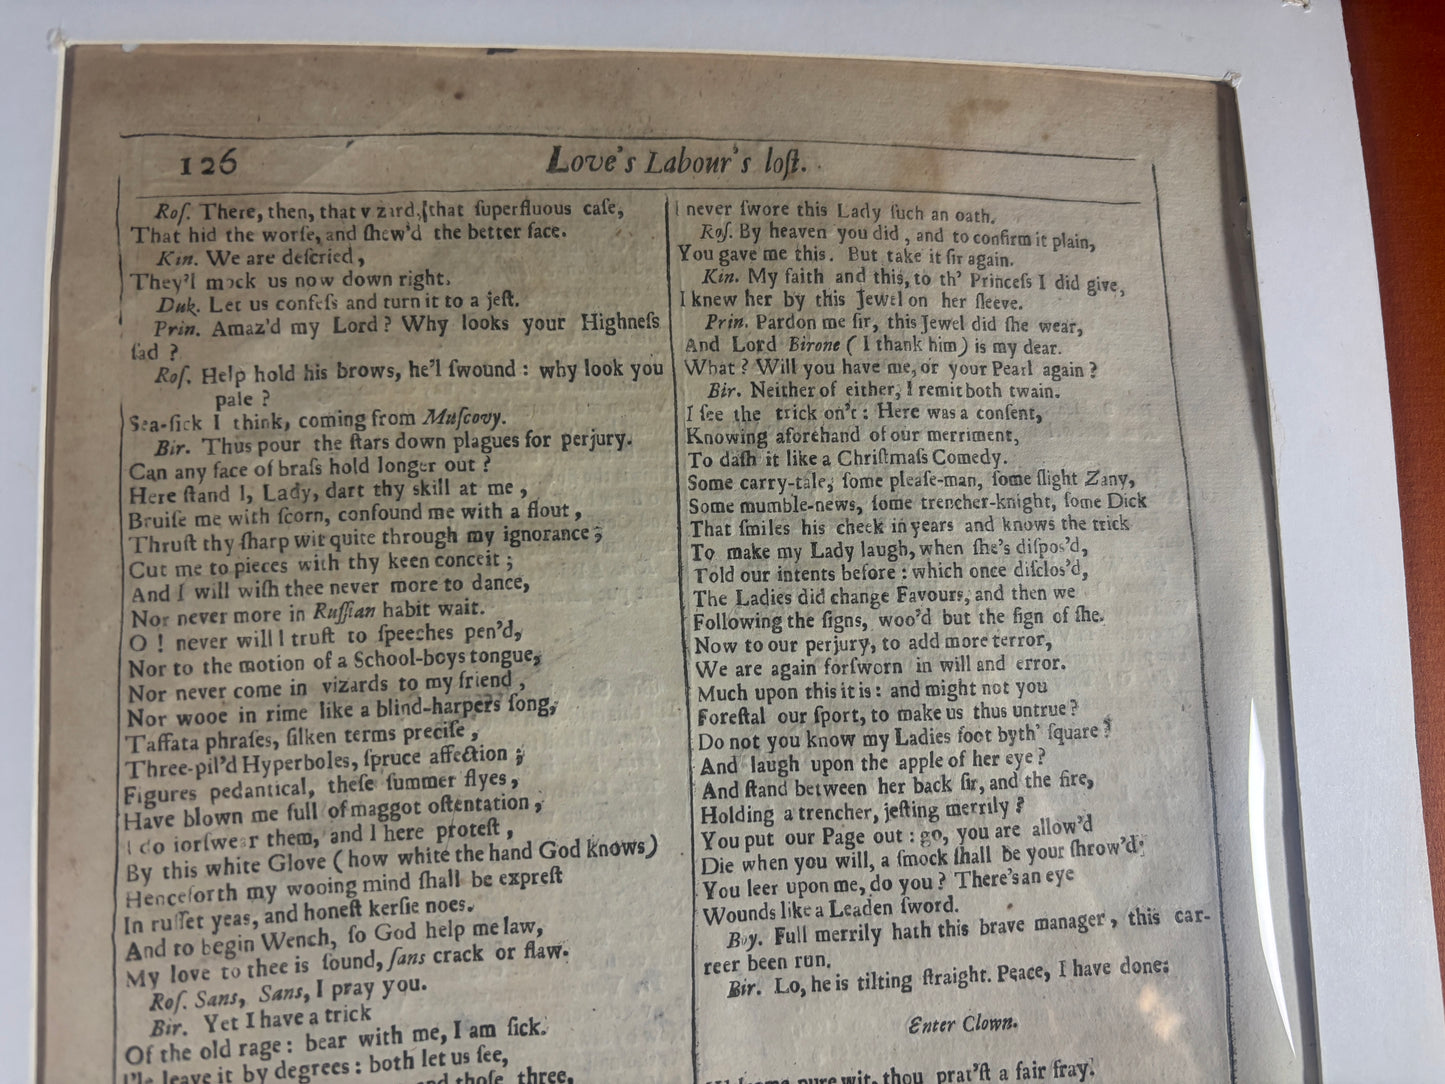 126
Love's Labour's loſt.
Roſ. There, then, that vizard, that ſuperfluous caſe,
That hid the worſe, and ſhew'd the better face.
Kin. We are deſcried,
They'l mock us now down right.
Duk. Let us confeſs and turn it to a jeſt.
Prin. Amaz'd my Lord? Why looks your Highneſs
ſad ?
Roſ. Help hold his brows, he'l ſwound : why look you
pale ?
Sea-ſick I think, coming from Muſcovy.
Bir. Thus pour the ſtars down plagues for perjury.
Can any face of braſs hold longer out ?
Here ſtand I, Lady, dart thy skill at me ,
Bruiſe me with ſcorn, confound me with a flout ,
Thruſt thy ſharp wit quite through my ignorance ;
Cut me to pieces with thy keen conceit ;
And I will wiſh thee never more to dance,
Nor never more in Ruſſian habit wait.
O ! never will I truſt to ſpeeches pen'd,
Nor to the motion of a School-boys tongue,
Nor never come in vizards to my friend ,
Nor wooe in rime like a blind-harpers ſong,
Taffata phraſes, ſilken terms preciſe ,
Three-pil'd Hyperboles, ſpruce affection ;
Figures pedantical, theſe ſummer flyes ,
Have blown me full of maggot oſtentation ,
I do forſwear them, and I here proteſt ,
By this white Glove (how white the hand God knows)
Henceforth my wooing mind ſhall be expreſt
In ruſſet yeas, and honeſt kerſie noes.
And to begin Wench, ſo God help me law,
My love to thee is ſound, ſans crack or flaw.
Roſ. Sans, Sans, I pray you.
Bir. Yet I have a trick
Of the old rage : bear with me, I am ſick.
I'le leave it by degrees : both let us ſee,
thoſe three,
I never ſwore this Lady ſuch an oath.
Roſ. By heaven you did , and to confirm it plain,
You gave me this. But take it ſir again.
Kin. My faith and this, to th' Princeſs I did give,
I knew her by this Jewel on her ſleeve.
Prin. Pardon me ſir, this Jewel did ſhe wear,
And Lord Birone ( I thank him) is my dear.
What ? Will you have me, or your Pearl again ?
Bir. Neither of either, I remit both twain.
I ſee the trick on't : Here was a conſent,
Knowing aforehand of our merriment,
To daſh it like a Chriſtmaſs Comedy.
Some carry-tale, ſome pleaſe-man, ſome ſlight Zany,
Some mumble-news, ſome trencher-knight, ſome Dick
That ſmiles his cheek in years and knows the trick
To make my Lady laugh, when ſhe's diſpos'd,
Told our intents before : which once diſclos'd,
The Ladies did change Favours, and then we
Following the ſigns, woo'd but the ſign of ſhe.
Now to our perjury, to add more terror,
We are again forſworn in will and error.
Much upon this it is : and might not you
Foreſtal our ſport, to make us thus untrue ?
Do not you know my Ladies foot byth' ſquare ?
And laugh upon the apple of her eye ?
And ſtand between her back ſir, and the fire,
Holding a trencher, jeſting merrily ?
You put our Page out : go, you are allow'd
Die when you will, a ſmock ſhall be your ſhrow'd.
You leer upon me, do you ? There's an eye
Wounds like a Leaden ſword.
Boy. Full merrily hath this brave manager , this car-
reer been run.
Bir. Lo, he is tilting ſtraight. Peace, I have done.
Enter Clown.
pure wit, thou prat'ſt a fair fray.